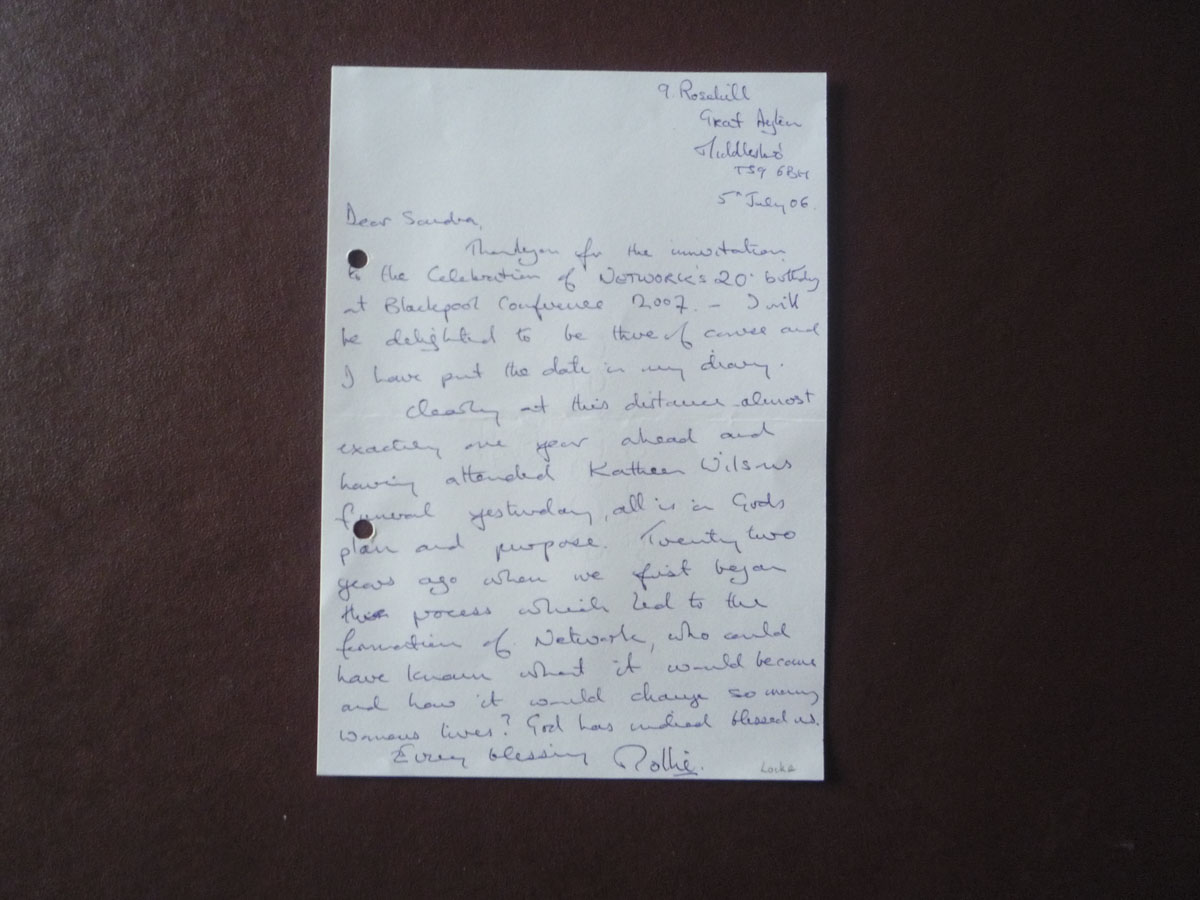 9. Rosehill
Great Ayton
Middlesbro'
TS9 6BH
5th July 06.
Dear Sandra,
Thankyou for the invitation
to the Celebration of NETWORK'S 20th birthday
at Blackpool Conference 2007. - I will
be delighted to be there of course and
I have put the date in my diary.
Clearly at this distance almost
exactly one year ahead and
having attended Kathleen Wilsons
funeral yesterday, all is in Gods
plan and purpose. Twenty two
years ago when we first began
the process which led to the
formation of Network, who could
have known what it would become
and how it would change so many
womens lives? God has indeed blessed us.
Every blessing
Locke